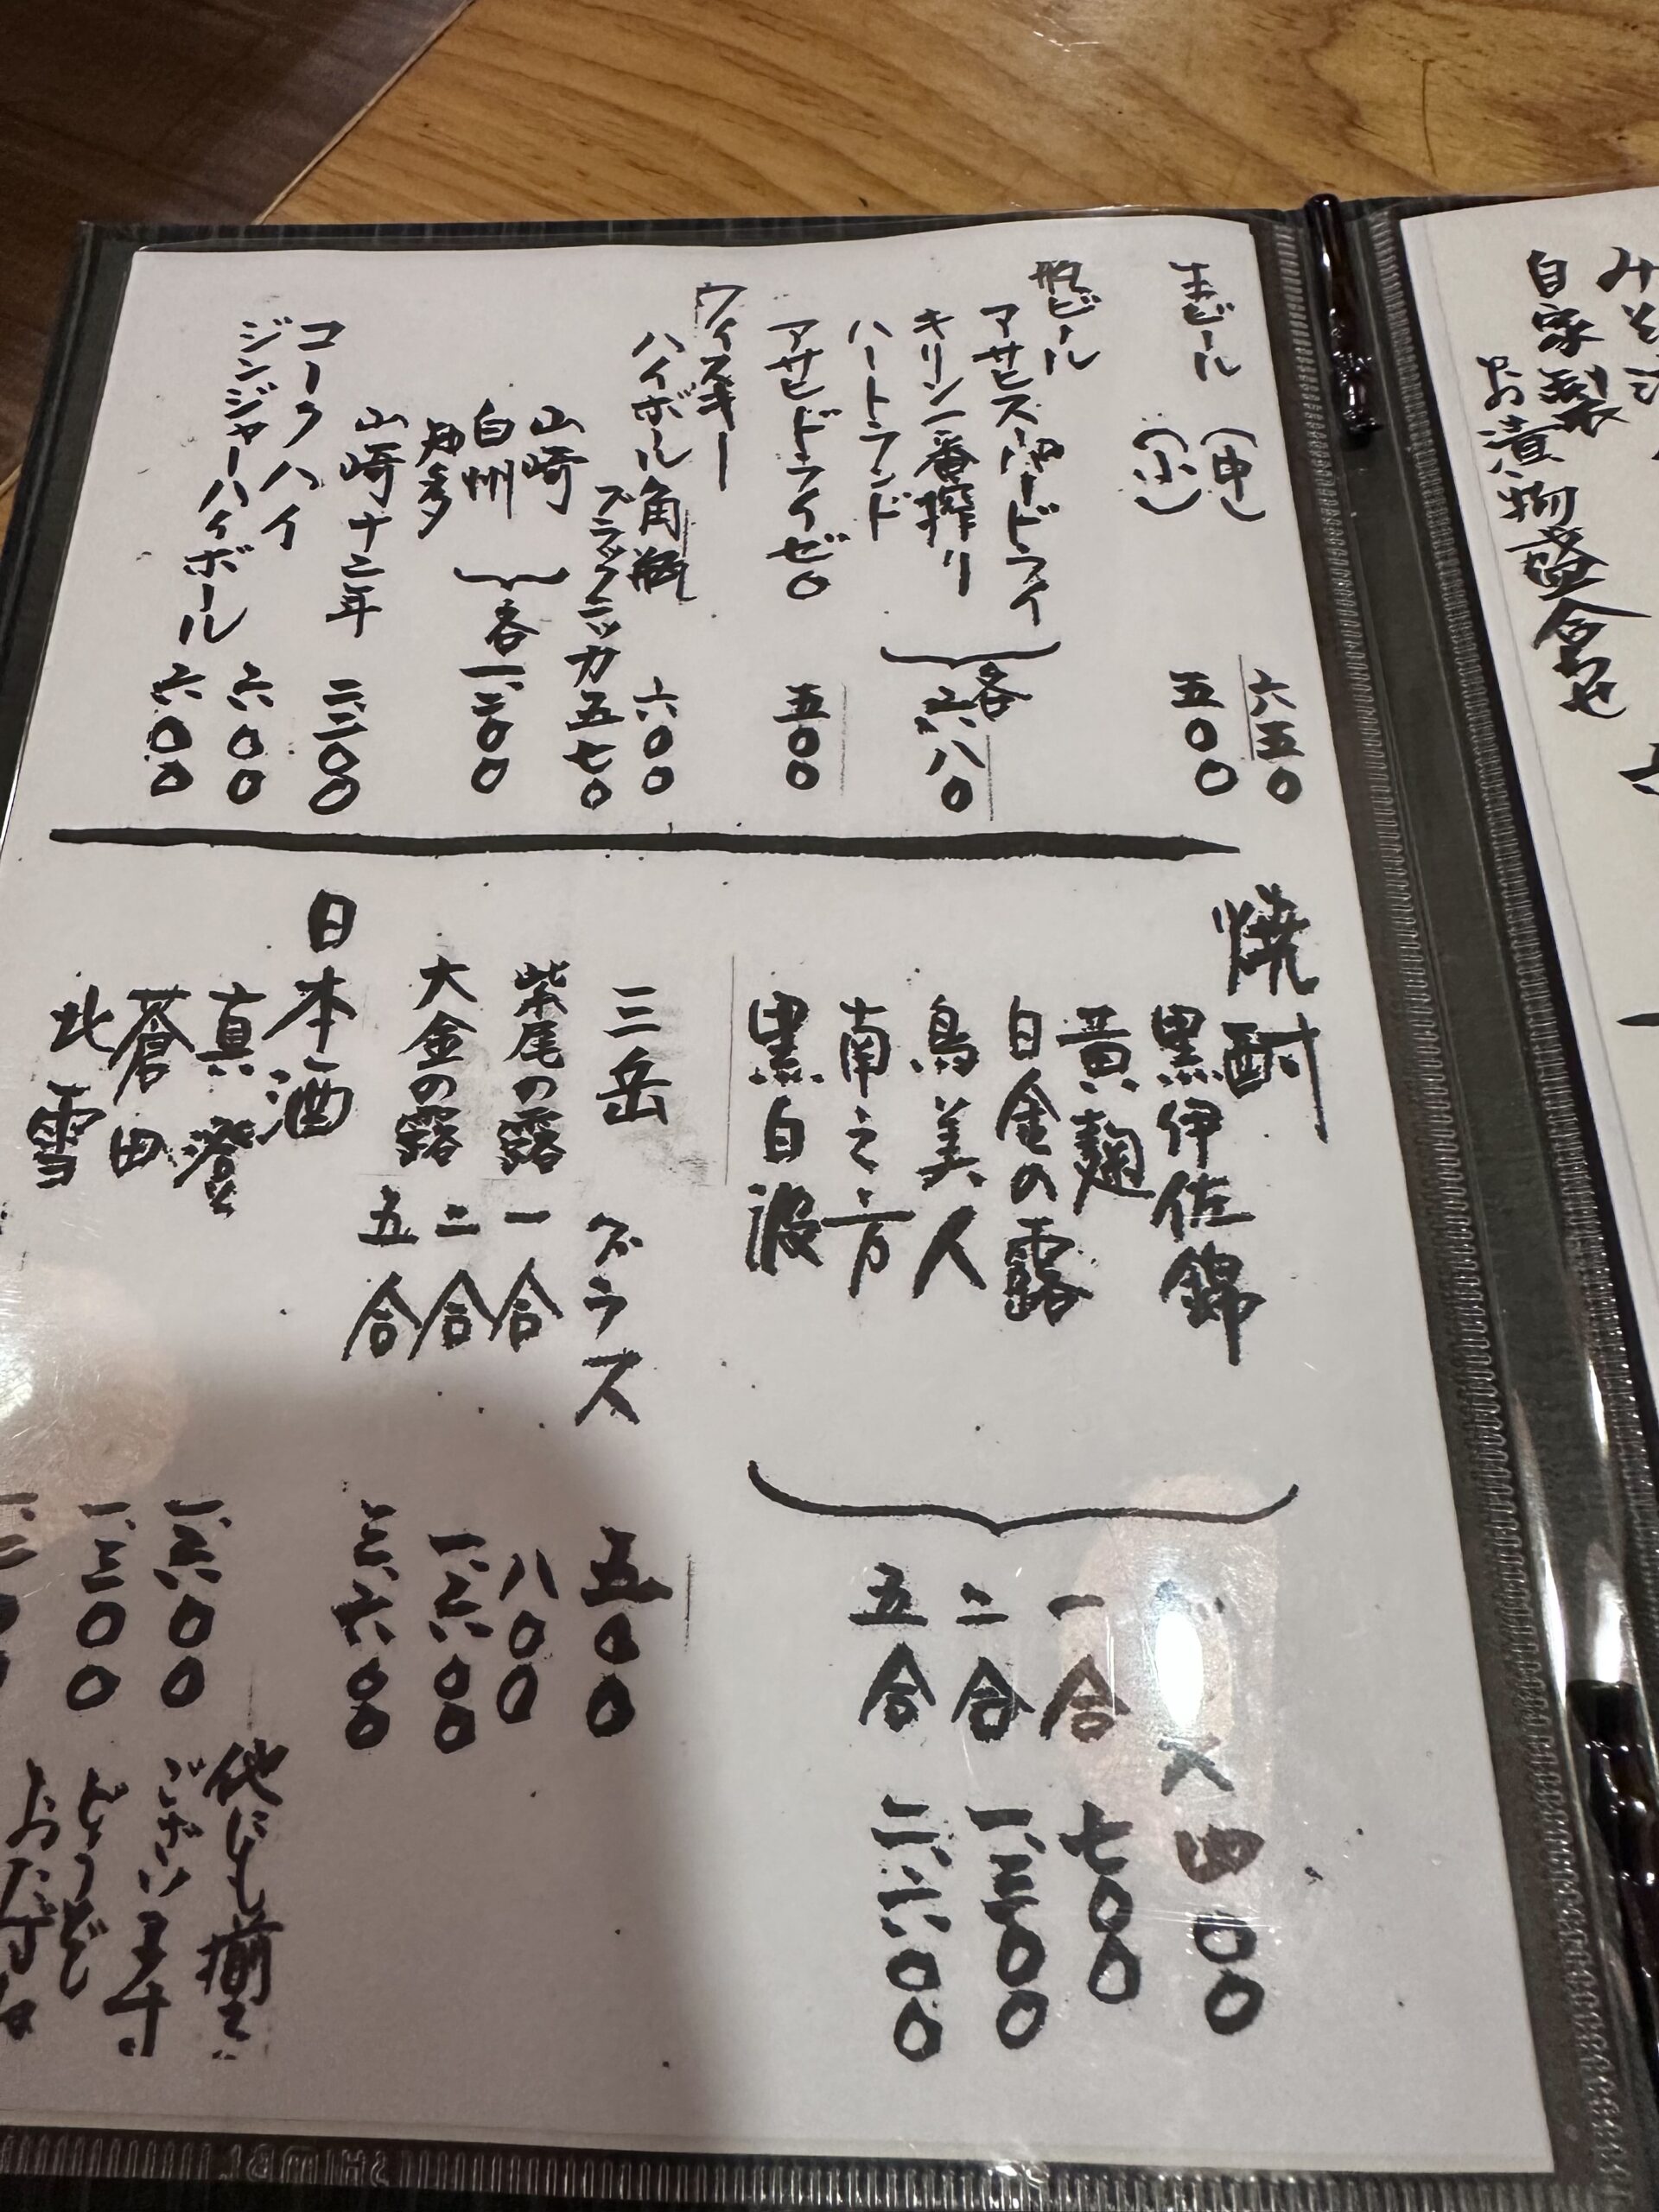 自家製
お漬物盛合わせ
生ビール
(中) 六五〇
(小) 五〇〇
瓶ビール
アサヒスーパードライ
キリン一番搾り
ハートランド
各六八〇
アサヒドライゼロ 五〇〇
ウィスキー
ハイボール 角瓶 六〇〇
ブラックニッカ 五七〇
山崎
白州
知多
各一、二〇〇
山崎十二年 二、二〇〇
コークハイ 六〇〇
ジンジャーハイボール 六〇〇
焼酎
黒伊佐錦
黄麹
白金の露
島美人
南之方
黒白波
四〇〇
一合 七〇〇
二合 一、三〇〇
五合 二、六〇〇
三岳 グラス 五〇〇
紫尾の露 一合 八〇〇
大金の露 二合 一、六〇〇
五合 三、六〇〇
日本酒
真澄 一、六〇〇
蒼田 一、三〇〇
北雪
他にも揃えて
ございます
どうぞ